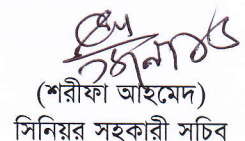 (শরীফা আহমেদ)
সিনিয়র সহকারী সচিব